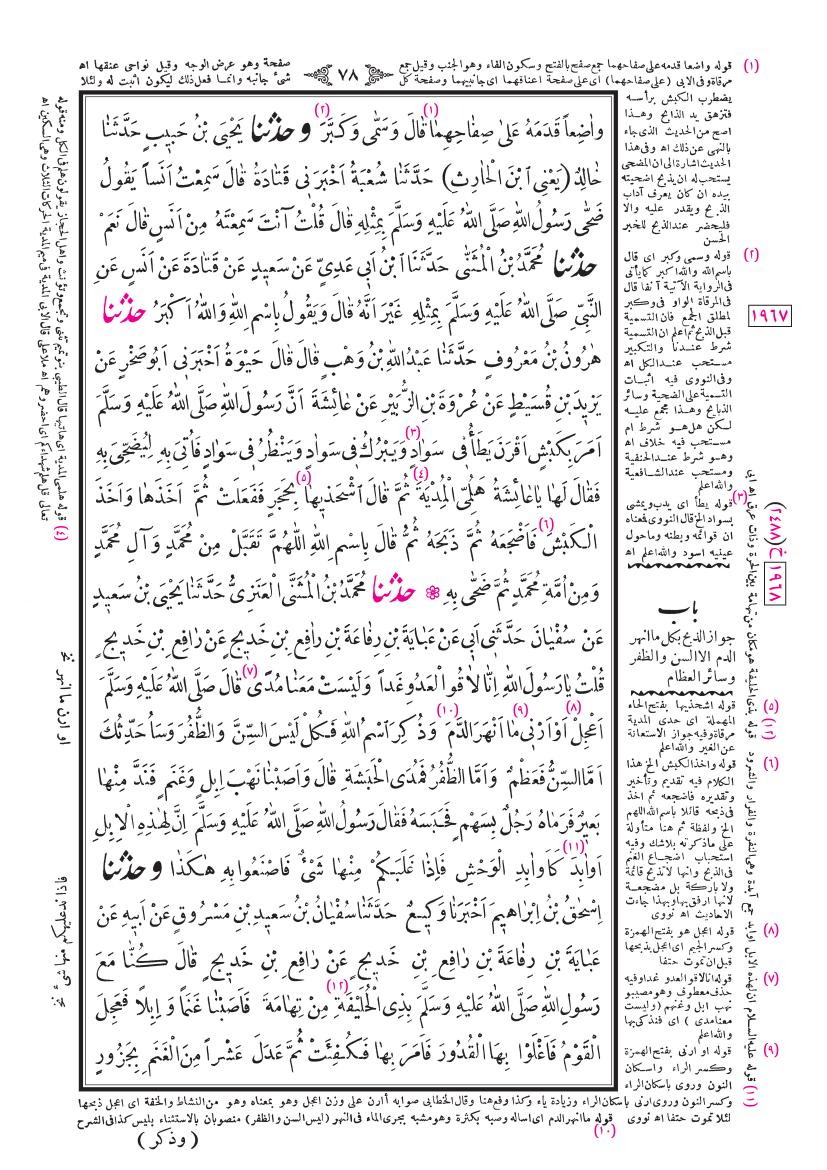 (١) قوله واضعا قدمه على صفاحهما جمع صفح بالفتح وسكون الفاء وهو الجنب وقيل جمع
مرقاة وفى الابى (على صفاحهما) اى على صفحة اعناقهما اى جانبيهما وصفحة كل
﴿ ٧٨ ﴾
صفحة وهو عرض الوجه وقيل نواحى عنقها اه
شئ جانبه وانما فعل ذلك ليكون اثبت له ولئلا
وَاضِعاً قَدَمَهُ عَلىٰ صِفَاحِهِمَا(١) قَالَ وَسَمّٰى وَكَبَّرَ(٢) وحدثنا يَحْيَى بْنُ حَبِيبٍ حَدَّثَنَا
خَالِدٌ (يَعْنِى ابْنَ الْحَارِثِ) حَدَّثَنَا شُعْبَةُ اَخْبَرَنِى قَتَادَةُ قَالَ سَمِعْتُ اَنَساً يَقُولُ
ضَحّٰى رَسُولُ اللهِ صَلَّى اللهُ عَلَيْهِ وَسَلَّمَ بِمِثْلِهِ قَالَ قُلْتُ آنْتَ سَمِعْتَهُ مِنْ اَنَسٍ قَالَ نَعَمْ
حدثنا مُحَمَّدُ بْنُ الْمُثَنّٰى حَدَّثَنَا ابْنُ اَبِى عَدِىٍّ عَنْ سَعِيدٍ عَنْ قَتَادَةَ عَنْ اَنَسٍ عَنِ
النَّبِىِّ صَلَّى اللهُ عَلَيْهِ وَسَلَّمَ بِمِثْلِهِ غَيْرَ اَنَّهُ قَالَ وَيَقُولُ بِاسْمِ اللهِ وَاللهُ اَكْبَرُ حدثنا
هٰرُونُ بْنُ مَعْرُوفٍ حَدَّثَنَا عَبْدُ اللهِ بْنُ وَهْبٍ قَالَ قَالَ حَيْوَةُ اَخْبَرَنِى اَبُو صَخْرٍ عَنْ
يَزِيدَ بْنِ قُسَيْطٍ عَنْ عُرْوَةَ بْنِ الزُّبَيْرِ عَنْ عَائِشَةَ اَنَّ رَسُولَ اللهِ صَلَّى اللهُ عَلَيْهِ وَسَلَّمَ
اَمَرَ بِكَبْشٍ اَقْرَنَ يَطَأُ فِى سَوَادٍ(٣) وَيَبْرُكُ فِى سَوَادٍ وَيَنْظُرُ فِى سَوَادٍ فَاُتِىَ بِهِ لِيُضَحِّىَ بِهِ
فَقَالَ لَهَا يَا عَائِشَةُ هَلُمِّى الْمُدْيَةَ(٤) ثُمَّ قَالَ اشْحَذِيهَا(٥) بِحَجَرٍ فَفَعَلَتْ ثُمَّ اَخَذَهَا وَاَخَذَ
الْكَبْشَ(٦) فَاَضْجَعَهُ ثُمَّ ذَبَحَهُ ثُمَّ قَالَ بِاسْمِ اللهِ اللّٰهُمَّ تَقَبَّلْ مِنْ مُحَمَّدٍ وَآلِ مُحَمَّدٍ
وَمِنْ اُمَّةِ مُحَمَّدٍ ثُمَّ ضَحّٰى بِهِ ۞ حدثنا مُحَمَّدُ بْنُ الْمُثَنَّى الْعَنَزِىُّ حَدَّثَنَا يَحْيَى بْنُ سَعِيدٍ
عَنْ سُفْيَانَ حَدَّثَنِى اَبِى عَنْ عَبَايَةَ بْنِ رِفَاعَةَ بْنِ رَافِعِ بْنِ خَدِيجٍ عَنْ رَافِعِ بْنِ خَدِيجٍ
قُلْتُ يَا رَسُولَ اللهِ اِنَّا لَاقُوا الْعَدُوِّ غَداً وَلَيْسَتْ مَعَنَا مُدًى(٧) قَالَ صَلَّى اللهُ عَلَيْهِ وَسَلَّمَ
اَعْجِلْ(٨) اَوْ اَرْنِى(٩) مَا اَنْهَرَ الدَّمَ(١٠) وَذُكِرَ اسْمُ اللهِ فَكُلْ لَيْسَ السِّنَّ وَالظُّفُرَ وَسَاُحَدِّثُكَ
اَمَّا السِّنُّ فَعَظْمٌ وَاَمَّا الظُّفُرُ فَمُدَى الْحَبَشَةِ قَالَ وَاَصَبْنَا نَهْبَ اِبِلٍ وَغَنَمٍ فَنَدَّ مِنْهَا
بَعِيرٌ فَرَمَاهُ رَجُلٌ بِسَهْمٍ فَحَبَسَهُ فَقَالَ رَسُولُ اللهِ صَلَّى اللهُ عَلَيْهِ وَسَلَّمَ اِنَّ لِهٰذِهِ الْاِبِلِ
اَوَابِدَ(١١) كَاَوَابِدِ الْوَحْشِ فَاِذَا غَلَبَكُمْ مِنْهَا شَىْءٌ فَاصْنَعُوا بِهِ هٰكَذَا وحدثنا
اِسْحٰقُ بْنُ اِبْرَاهِيمَ اَخْبَرَنَا وَكِيعٌ حَدَّثَنَا سُفْيَانُ بْنُ سَعِيدِ بْنِ مَسْرُوقٍ عَنْ اَبِيهِ عَنْ
عَبَايَةَ بْنِ رِفَاعَةَ بْنِ رَافِعِ بْنِ خَدِيجٍ عَنْ رَافِعِ بْنِ خَدِيجٍ قَالَ كُنَّا مَعَ
رَسُولِ اللهِ صَلَّى اللهُ عَلَيْهِ وَسَلَّمَ بِذِى الْحُلَيْفَةِ(١٢) مِنْ تِهَامَةَ فَاَصَبْنَا غَنَماً وَاِبِلاً فَعَجِلَ
الْقَوْمُ فَاَغْلَوْا بِهَا الْقُدُورَ فَاَمَرَ بِهَا فَكُفِئَتْ ثُمَّ عَدَلَ عَشْراً مِنَ الْغَنَمِ بِجَزُورٍ
يضطرب الكبش برأسه
فتزهق يد الذابح وهذا
اصح من الحديث الذى جاء
بالنهى عن ذلك اه وفى هذا
الحديث اشارة الى ان المضحى
يستحب له ان يذبح اضحيته
بيده ان كان يعرف آداب
الذبح ويقدر عليه والا
فليحضر عند الذبح للخبر
الحسن
(٢) قوله وسمى وكبر اى قال
باسم الله والله اكبر كما يأتى
فى الرواية الآتية آنفا قال
فى المرقاة الواو فى وكبر
لمطلق الجمع فان التسمية
قبل الذبح ثم اعلم ان التسمية
شرط عندنا والتكبير
مستحب عند الكل اه
وفى النووى فيه اثبات
التسمية على الضحية وسائر
الذبايح وهذا مجمع عليه
لكن هل هو شرط ام
مستحب فيه خلاف اه
وهو شرط عند الحنفية
ومستحب عند الشافعية
والله اعلم
(٣) قوله يطأ اى يدب ويمشى
بسواد الخ قال النووى فمعناه
ان قوائمه وبطنه وماحول
عينيه اسود والله اعلم اه
باب
جواز الذبح بكل ما انهر
الدم الا السن والظفر
وسائر العظام
(٥) قوله اشحذيها بفتح الحاء
المهملة اى حدى المدية
مرقاة وفيه جواز الاستعانة
عن الغير والله اعلم
(٦) قوله واخذ الكبش الخ هذا
الكلام فيه تقديم وتأخير
وتقديره فاضجعه ثم اخذ
فى ذبحه قائلا باسم الله اللهم
الخ ولفظة ثم هنا متأولة
على ماذكرته بلا شك وفيه
استحباب اضجاع الغنم
فى الذبح وانها لا تذبح قائمة
ولا باركة بل مضجعة
لانها ارفق بها وبهذا جاءت
الاحاديث اه نووى
(٨) قوله اعجل هو بفتح الهمزة
وكسر الجيم اى اعجل بذبحها
قبل ان تموت حتفا
(٧) قوله انا لاقو العدو غدا وفيه
حذف معطوف وهو مصيبو
نهب ابل وغنم (وليست
معنا مدى) اى فنذكى بها
والله اعلم
(٩) قوله او ارنى بفتح الهمزة
وكسر الراء واسكان
النون وروى باسكان الراء
وكسر النون وروى ارنى باسكان الراء وزيادة ياء وكذا وقع هنا وقال الخطابى صوابه أأرن على وزن اعجل وهو بمعناه وهو من النشاط والخفة اى اعجل ذبحها
لئلا تموت حتفا اه نووى (١٠) قوله ما انهر الدم اى اساله وصبه بكثرة وهو مشبه بجرى الماء فى النهر (ليس السن والظفر) منصوبان بالاستثناء بليس كذا فى الشرح
١٩٦٧
(٢٤٨٨) خ ١٩٦٨
(١١) قوله عليه السلام ان لهذه الابل اوابد جمع آبدة وهى النفرة والفرار والشرود
(١٢) قوله بذى الحليفة هو مكان من تهامة بين الحرة وذات عرق اه ابى
(٤) قوله هلمى المدية اى هاتيها قال الطيبى بنو تميم تثنى وتجمع وتؤنث واهل الحجاز يقولون هلم فى الكل ومنه قوله
تعالى قل هلم شهداءكم اى احضروهم اه ملا على قال الابى المدية فى ميم المدية الحركات الثلاث وهى السكين اه
او ارن ما انهر نخ
(وذكر)